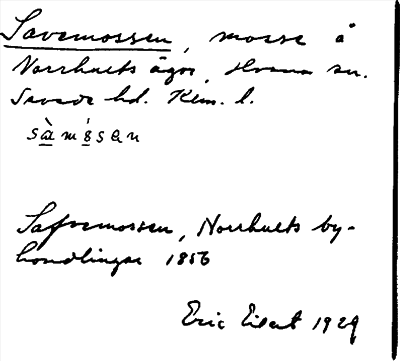 Savemossen, mosse å
Norrhults ägor, Hvena sn.
Sevede hd. Klm. l.
sàmósan
Safvemossen, Norrhults by-
handlingar 1856
Eric Elert 1929